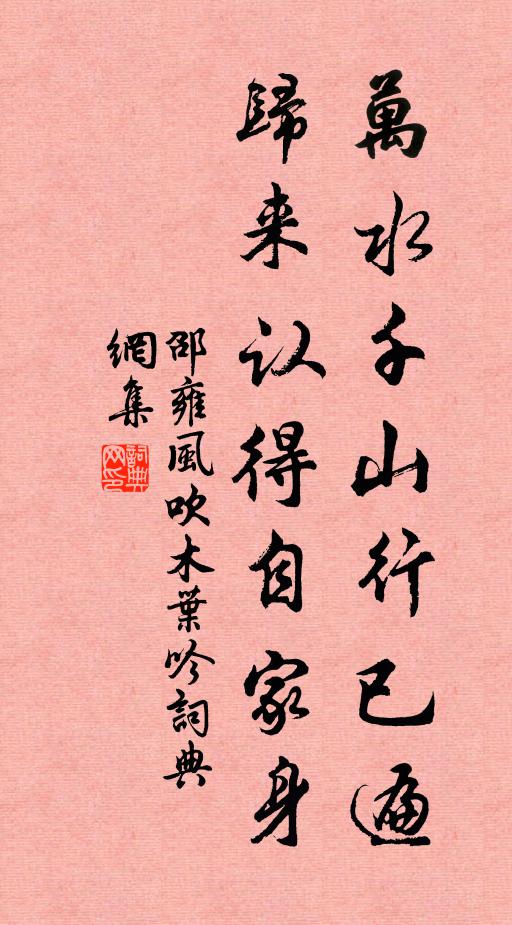 萬水千山行已遍
歸来认得自家身
邵雍風吹木葉吟詞典
網集
詞典
网印